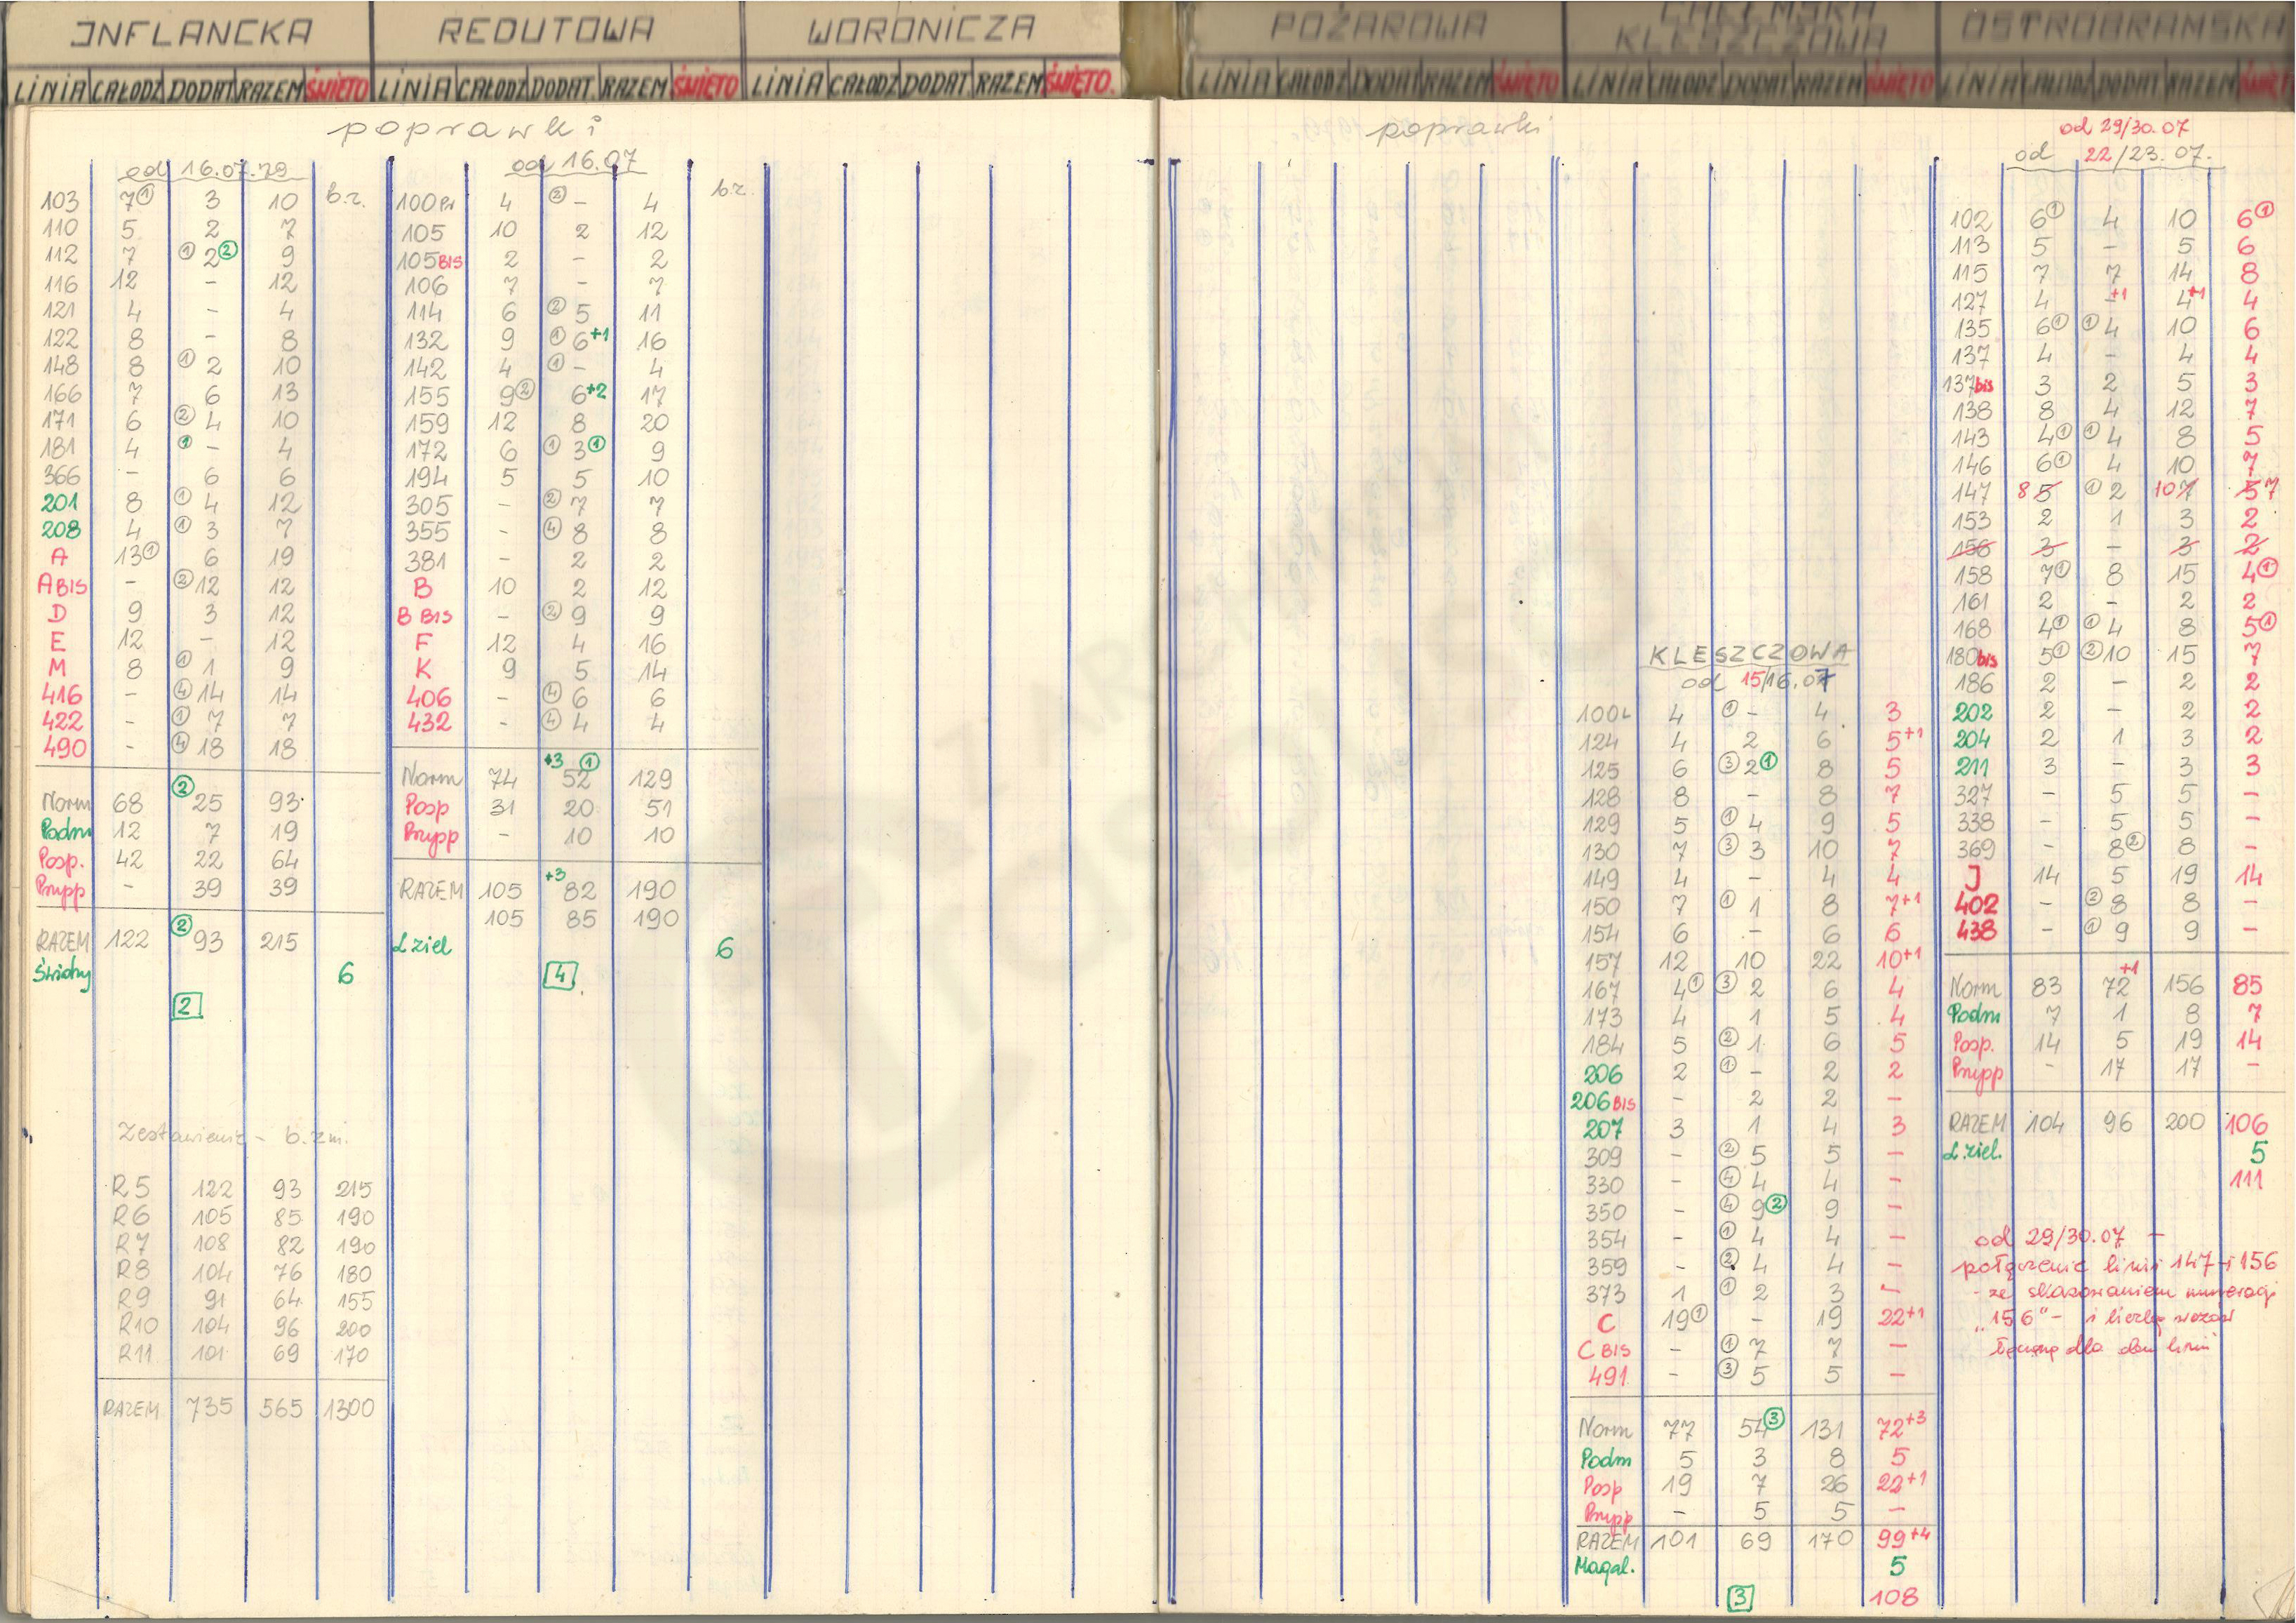 INFLANCKA
LINIA CAŁODZ DODAT RAZEM ŚWIĘTO
poprawki
od 16.07.79
103 7① 3 10 b.z.
110 5 2 7
112 7 ①2② 9
116 12 - 12
121 4 - 4
122 8 - 8
148 8 ①2 10
166 7 6 13
171 6 ②4 10
181 4 ①- 4
366 - 6 6
201 8 ①4 12
208 4 ①3 7
A 13① 6 19
A BIS - ②12 12
D 9 3 12
E 12 - 12
M 8 ①1 9
416 - ④14 14
422 - ①7 7
490 - ④18 18
②
Norm 68 25 93
Podm 12 7 19
Posp. 42 22 64
Pnypp - 39 39
②
RAZEM 122 93 215
6
2
Zestawienie - b. zm.
R5 122 93 215
R6 105 85 190
R7 108 82 190
R8 104 76 180
R9 91 64 155
R10 104 96 200
R11 101 69 170
RAZEM 735 565 1300
REDUTOWA
LINIA CAŁODZ DODAT. RAZEM ŚWIĘTO
od 16.07
100Pr 4 ②- 4 b.z.
105 10 2 12
105BIS 2 - 2
106 7 - 7
114 6 ②5 11
132 9 ①6+1 16
142 4 ①- 4
155 9② 6+2 17
159 12 8 20
172 6 ①3① 9
194 5 5 10
305 - ②7 7
355 - ④8 8
381 - 2 2
B 10 2 12
B BIS - ②9 9
F 12 4 16
K 9 5 14
406 - ④6 6
432 - ④4 4
+3 ①
Norm 74 52 129
Posp 31 20 51
Pnypp - 10 10
+3
RAZEM 105 82 190
105 85 190
L ziel 6
4
WORONICZA
LINIA CAŁODZ DODAT. RAZEM ŚWIĘTO.
POŻAROWA
LINIA CAŁODZ DODAT RAZEM ŚWIĘTO
poprawki
CHEŁMSKA
KLESZCZOWA
LINIA CAŁODZ DODAT RAZEM ŚWIĘTO
KLESZCZOWA
od 15/16.07
100L 4 ①- 4 3
124 4 2 6 5+1
125 6 ③2① 8 5
128 8 - 8 7
129 5 ①4 9 5
130 7 ③3 10 7
149 4 - 4 4
150 7 ①1 8 7+1
154 6 - 6 6
157 12 10 22 10+1
167 4① ③2 6 4
173 4 1 5 4
184 5 ②1 6 5
206 2 ①- 2 2
206BIS - 2 2 -
207 3 1 4 3
309 - ②5 5 -
330 - ④4 4 -
350 - ④9② 9 -
354 - ①4 4 -
359 - ②4 4 -
373 1 ①2 3 -
C 19① - 19 22+1
C BIS - ①7 7 -
491 - ③5 5 -
Norm 77 54③ 131 72+3
Podm 5 3 8 5
Posp 19 7 26 22+1
Pnypp - 5 5 -
RAZEM 101 69 170 99+4
Magal. 5
3 108
OSTROBRAMSKA
LINIA CAŁODZ DODAT RAZEM ŚWIĘTO
od 29/30.07
od 22/23.07.
102 6① 4 10 6①
113 5 - 5 6
115 7 7 14 8
127 4 -+1 4+1 4
135 6① ①4 10 6
137 4 - 4 4
137bis 3 2 5 3
138 8 4 12 7
143 4① ①4 8 5
146 6① 4 10 7
147 8 5 ①2 10 7 5 7
153 2 1 3 2
156 3 - 3 2
158 7① 8 15 4①
161 2 - 2 2
168 4① ①4 8 5①
180bis 5① ②10 15 7
186 2 - 2 2
202 2 - 2 2
204 2 1 3 2
211 3 - 3 3
327 - 5 5 -
338 - 5 5 -
369 - 8② 8 -
J 14 5 19 14
402 - ②8 8 -
438 - ①9 9 -
+1
Norm 83 72 156 85
Podm 7 1 8 7
Posp. 14 5 19 14
Pnypp - 17 17 -
RAZEM 104 96 200 106
L. ziel. 5
111
od 29/30.07 -
połączenie linii 147 i 156
- ze skasowaniem numeracji
"156" - i liczbę wozów
łączną dla obu linii